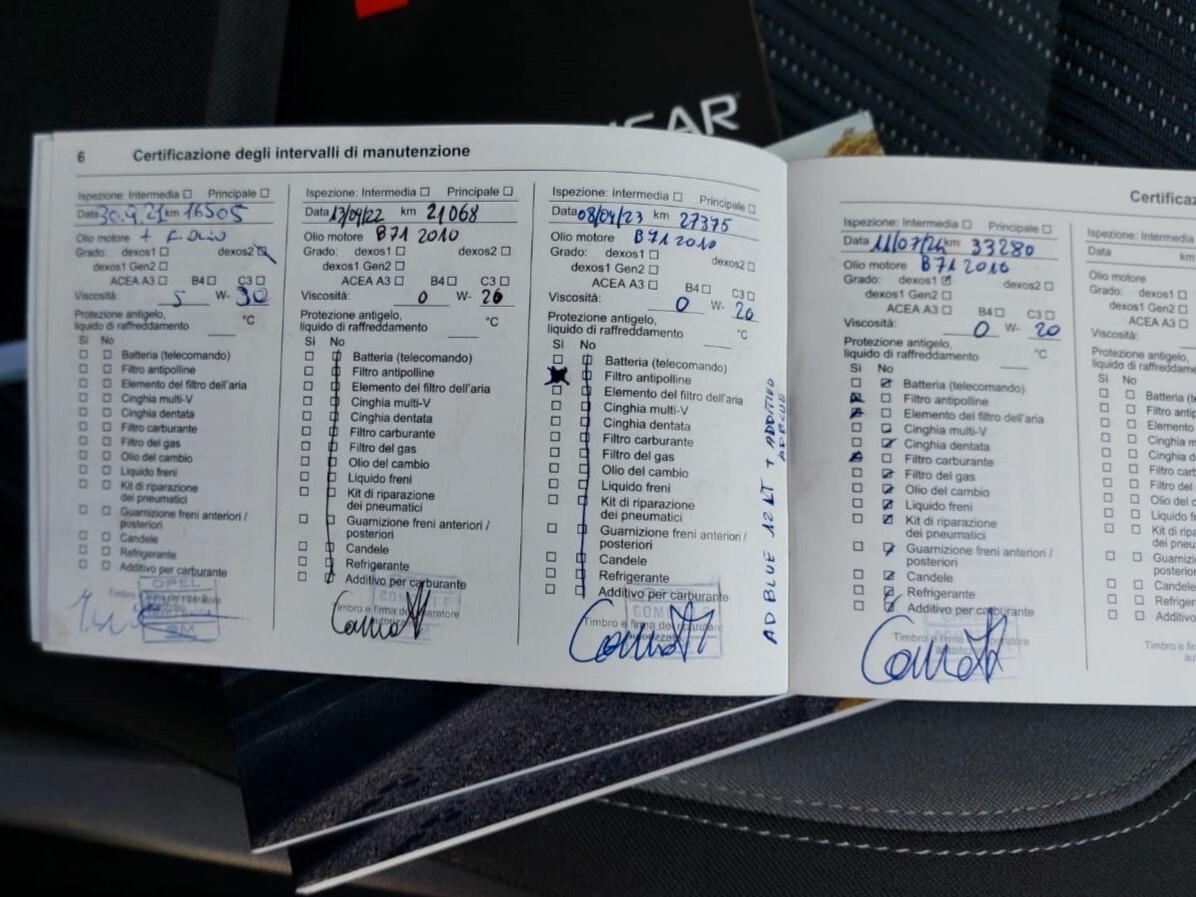 6 Certificazione degli intervalli di manutenzione
Ispezione: Intermedia ☐ Principale ☐
Data 30.9.21 km 16505
Olio motore + F. Olio
Grado: dexos1 ☐ dexos2 ☒
dexos1 Gen2 ☐
ACEA A3 ☐ B4 ☐ C3 ☐
Viscosità: 5 W- 30
Protezione antigelo,
liquido di raffreddamento °C
Sì No
☐ ☐ Batteria (telecomando)
☐ ☐ Filtro antipolline
☐ ☐ Elemento del filtro dell'aria
☐ ☐ Cinghia multi-V
☐ ☐ Cinghia dentata
☐ ☐ Filtro carburante
☐ ☐ Filtro del gas
☐ ☐ Olio del cambio
☐ ☐ Liquido freni
☐ ☐ Kit di riparazione
dei pneumatici
☐ ☐ Guarnizione freni anteriori /
posteriori
☐ ☐ Candele
☐ ☐ Refrigerante
☐ ☐ Additivo per carburante
OPEL
Ispezione: Intermedia ☐ Principale ☐
Data 13/09/22 km 21068
Olio motore B71 2010
Grado: dexos1 ☐ dexos2 ☐
dexos1 Gen2 ☐
ACEA A3 ☐ B4 ☐ C3 ☐
Viscosità: 0 W- 20
Protezione antigelo,
liquido di raffreddamento °C
Sì No
☐ ☐ Batteria (telecomando)
☐ ☐ Filtro antipolline
☐ ☐ Elemento del filtro dell'aria
☐ ☐ Cinghia multi-V
☐ ☐ Cinghia dentata
☐ ☐ Filtro carburante
☐ ☐ Filtro del gas
☐ ☐ Olio del cambio
☐ ☐ Liquido freni
☐ ☐ Kit di riparazione
dei pneumatici
☐ ☐ Guarnizione freni anteriori /
posteriori
☐ ☐ Candele
☐ ☐ Refrigerante
☐ ☐ Additivo per carburante
Timbro e firma del riparatore
Ispezione: Intermedia ☐ Principale ☐
Data 08/04/23 km 27375
Olio motore B71 2010
Grado: dexos1 ☐ dexos2 ☐
dexos1 Gen2 ☐
ACEA A3 ☐ B4 ☐ C3 ☐
Viscosità: 0 W- 20
Protezione antigelo,
liquido di raffreddamento °C
Sì No
☐ ☐ Batteria (telecomando)
☒ ☐ Filtro antipolline
☐ ☐ Elemento del filtro dell'aria
☐ ☐ Cinghia multi-V
☐ ☐ Cinghia dentata
☐ ☐ Filtro carburante
☐ ☐ Filtro del gas
☐ ☐ Olio del cambio
☐ ☐ Liquido freni
☐ ☐ Kit di riparazione
dei pneumatici
☐ ☐ Guarnizione freni anteriori /
posteriori
☐ ☐ Candele
☐ ☐ Refrigerante
☐ ☐ Additivo per carburante
Timbro e firma del riparatore
autorizzato
AD BLUE 12 LT + ADDITIVO
ADBLUE
Certific
Ispezione: Intermedia ☐ Principale ☐
Data 11/07/24 km 33280
Olio motore B71 2010
Grado: dexos1 ☑ dexos2 ☐
dexos1 Gen2 ☐
ACEA A3 ☐ B4 ☐ C3 ☐
Viscosità: 0 W- 20
Protezione antigelo,
liquido di raffreddamento °C
Sì No
☐ ☑ Batteria (telecomando)
☒ ☐ Filtro antipolline
☒ ☐ Elemento del filtro dell'aria
☐ ☑ Cinghia multi-V
☐ ☑ Cinghia dentata
☒ ☐ Filtro carburante
☐ ☑ Filtro del gas
☐ ☑ Olio del cambio
☐ ☑ Liquido freni
☐ ☑ Kit di riparazione
dei pneumatici
☐ ☑ Guarnizione freni anteriori /
posteriori
☐ ☑ Candele
☐ ☑ Refrigerante
☐ ☑ Additivo per carburante
Timbro e firma riparatore
Ispezione: Intermedia
Data km
Olio motore
Grado: dexos1 ☐
dexos1 Gen2 ☐
ACEA A3 ☐
Viscosità:
Protezione antigelo,
liquido di raffreddame
Sì No
☐ ☐ Batteria (te
☐ ☐ Filtro antip
☐ ☐ Elemento
☐ ☐ Cinghia m
☐ ☐ Cinghia d
☐ ☐ Filtro carb
☐ ☐ Filtro del
☐ ☐ Olio del c
☐ ☐ Liquido fr
☐ ☐ Kit di ripa
dei pneu
☐ ☐ Guarnizi
posterior
☐ ☐ Candele
☐ ☐ Refriger
☐ ☐ Additivo
Timbro e fir